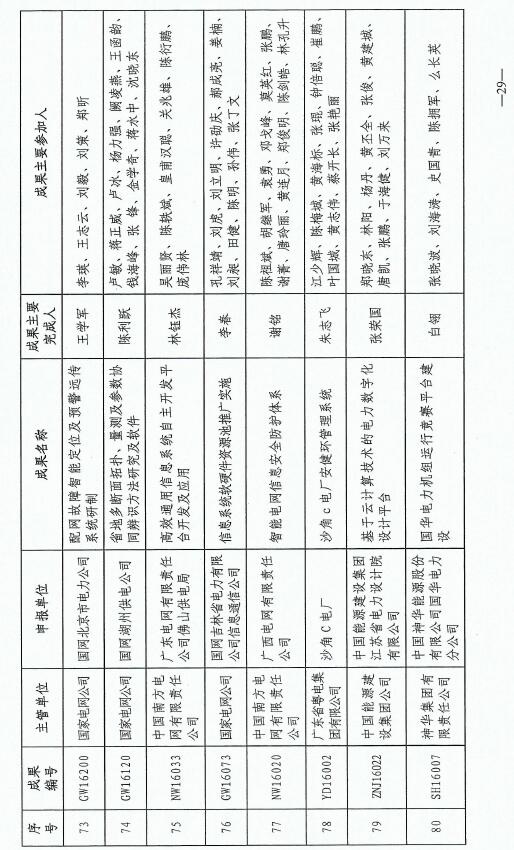 序号 成果编号 主管单位 申报单位 成果名称 成果主要完成人 成果主要参加人
73 GW16200 国家电网公司 国网北京市电力公司 配网故障智能定位及预警远传系统研制 王学军 李瑛、王志云、刘毅、刘策、郑昕
74 GW16120 国家电网公司 国网湖州供电公司 省地多断面拓扑、量测及参数协同辨识方法研究及软件 陈利跃 卢敏、蒋正威、卢冰、杨力强、阙凌燕、王函韵、钱海峰、张锋、金学奇、蒋水中、沈晓东
75 NW16033 中国南方电网有限责任公司 广东电网有限责任公司佛山供电局 高效通用信息系统自主开发平台开发及应用 林钰杰 吴丽贤、陈轶斌、皇甫汉聪、关兆雄、陈衍鹏、庞伟林
76 GW16073 国家电网公司 国网吉林省电力有限公司信息通信公司 信息系统软硬件资源池推广实施 李春 孔祥靖、刘虎、刘立明、许劲庆、那成亮、姜楠、刘昶、田健、陈明、孙伟、张丁文
77 NW16020 中国南方电网有限责任公司 广西电网有限责任公司 智能电网信息安全防护体系 谢铭 陈祖斌、胡继军、袁勇、邓戈峰、莫英红、张鹏、谢菁、唐玲丽、黄连月、郑俊明、陈剑皓、林孔升
78 YD16002 广东省粤电集团有限公司 沙角C电厂 沙角C电厂安健环管理系统 朱志飞 江少辉、陈梅城、黄海标、张琨、钟倍聪、崔鹏、叶国城、黄志伟、蔡开长、张艳丽
79 ZNJ16022 中国能源建设集团公司 中国能源建设集团江苏省电力设计院有限公司 基于云计算技术的电力数字化设计平台 张荣国 郑晓东、林阳、杨丹、黄丕全、张俊、黄建城、唐凯、张鹏、于海健、刘万来
80 SH16007 神华集团有限责任公司 中国神华能源股份有限公司国华电力分公司 国华电力机组运行竞赛平台建设 白翎 张晓波、刘海涛、史国青、陈拥军、么长英
—29—